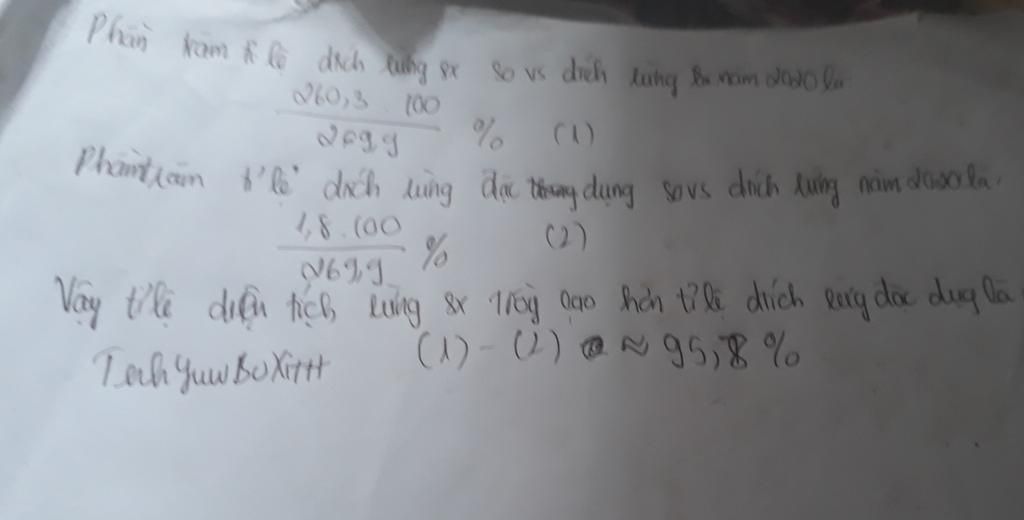 Phần trăm tỉ lệ dtích rừng sx so vs dtích rừng sx năm 2020 là
260,3 . 100
269,9 % (1)
Phần trăm tỉ lệ dtích rừng đặc dụng so vs dtích rừng năm 2020 là.
1,8 . 100
269,9 % (2)
Vậy tỉ lệ diện tích rừng sx hơn tỉ lệ dtích rừng đặc dụg là
(1) - (2) ≈ 95,8 %
TenhYuwBoXittt